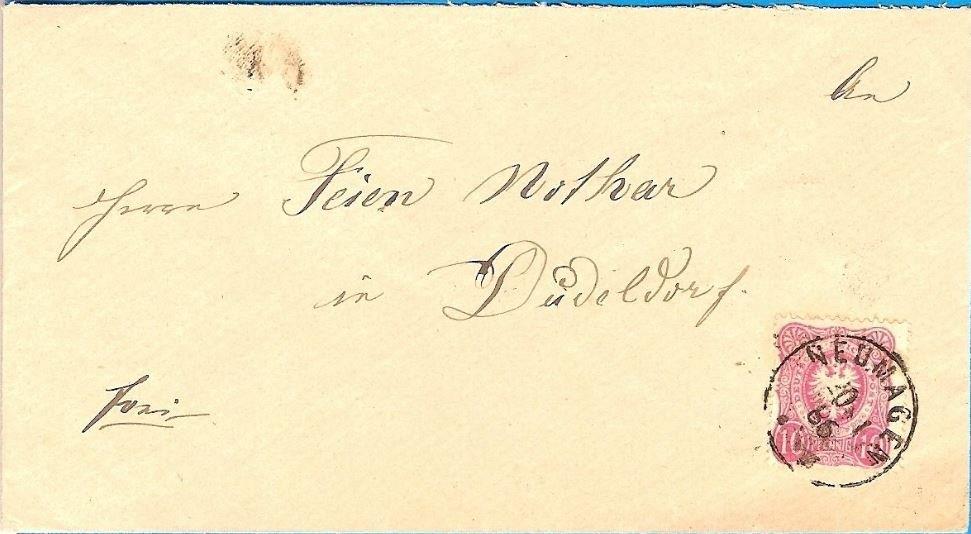 An
Herrn Feien Nothar
in Dudeldorf.
frei
NEUMAGEN
20 1
86
10 PFENNIG 10